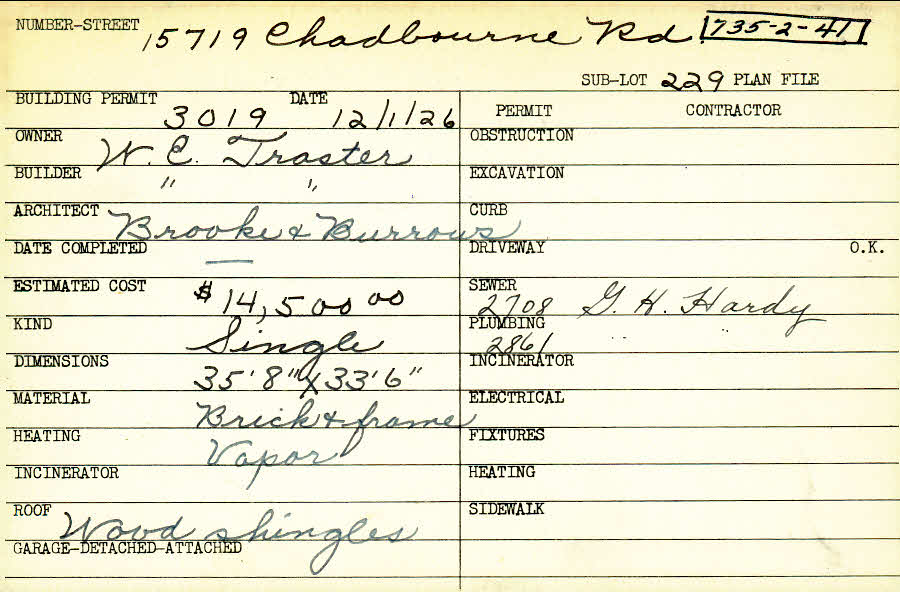 NUMBER-STREET 15719 Chadbourne Rd. 735-2-41
SUB-LOT 229 PLAN FILE
BUILDING PERMIT 3019 DATE 12/1/26
PERMIT CONTRACTOR
OWNER W. C. Traster
OBSTRUCTION
BUILDER " "
EXCAVATION
ARCHITECT Brooke & Burrows
CURB
DATE COMPLETED —
DRIVEWAY O.K.
ESTIMATED COST $14,500 00
SEWER 2708 G. H. Hardy
KIND Single
PLUMBING 2861 " "
DIMENSIONS 35'8" X 33'6"
INCINERATOR
MATERIAL Brick & frame
ELECTRICAL
HEATING Vapor
FIXTURES
INCINERATOR
HEATING
ROOF Wood shingles
SIDEWALK
GARAGE-DETACHED-ATTACHED